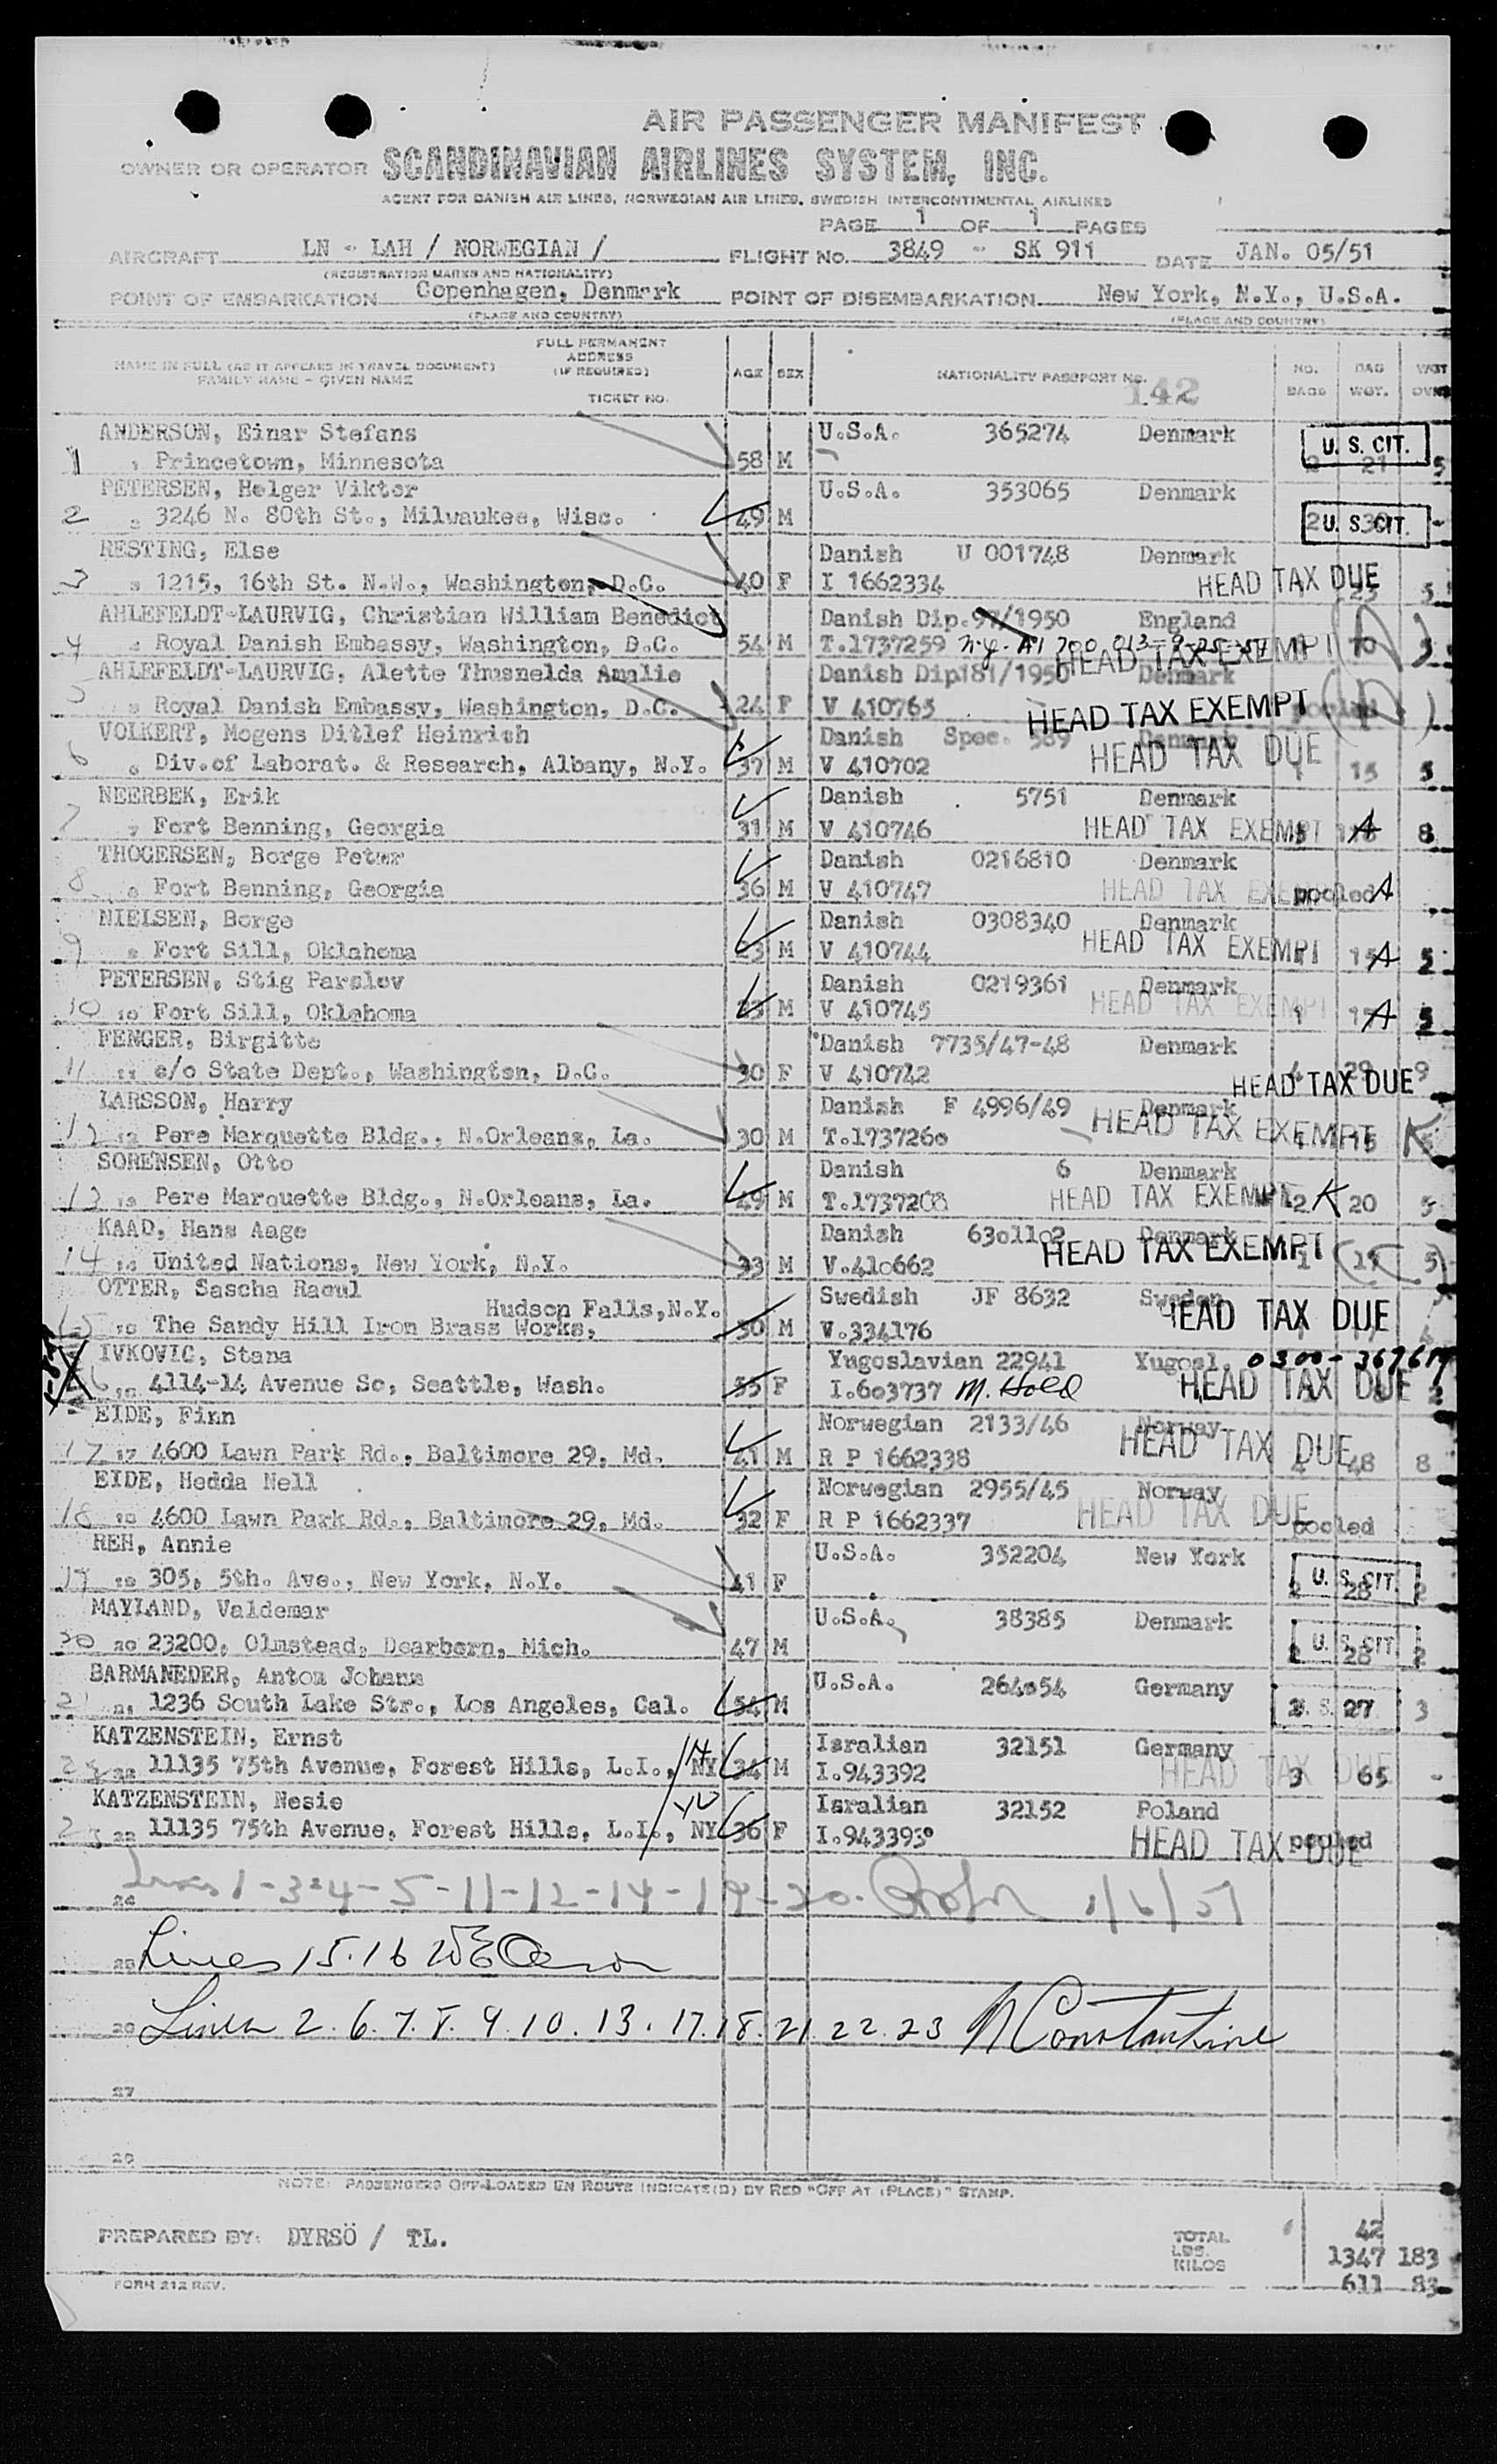 AIR PASSENGER MANIFEST
OWNER OR OPERATOR SCANDINAVIAN AIRLINES SYSTEM, INC.
AGENT FOR DANISH AIR LINES, NORWEGIAN AIR LINES, SWEDISH INTERCONTINENTAL AIRLINES
PAGE 1 OF 1 PAGES
AIRCRAFT LN - LAH / NORWEGIAN / FLIGHT NO. 3849 - SK 911 DATE JAN. 05/51
(REGISTRATION MARKS AND NATIONALITY)
POINT OF EMBARKATION Copenhagen, Denmark POINT OF DISEMBARKATION New York, N.Y., U.S.A.
(PLACE AND COUNTRY) (PLACE AND COUNTRY)
NAME IN FULL (AS IT APPEARS IN TRAVEL DOCUMENT) FAMILY NAME - GIVEN NAME FULL PERMANENT ADDRESS (IF REQUIRED) TICKET NO. AGE SEX NATIONALITY PASSPORT NO. 142 NO. BAGS BAG WGT.
ANDERSON, Einar Stefans U.S.A. 365274 Denmark U. S. CIT.
1 Princetown, Minnesota 58 M 2 21 5
PETERSEN, Helger Viktor U.S.A. 353065 Denmark
2 3246 N. 80th St., Milwaukee, Wisc. 49 M 2 U. S. CIT. -
RESTING, Else Danish U 001748 Denmark
3 1215, 16th St. N.W., Washington, D.C. 40 F I 1662334 HEAD TAX DUE 25 5
AHLEFELDT-LAURVIG, Christian William Benedict Danish Dip.97/1950 England
4 Royal Danish Embassy, Washington, D.C. 54 M T.1737259 HEAD TAX EXEMPT 70 5
AHLEFELDT-LAURVIG, Alette Thusnelda Amalie Danish Dip181/1950 Denmark
5 Royal Danish Embassy, Washington, D.C. 24 F V 410765 HEAD TAX EXEMPT pooled
VOLKERT, Mogens Ditlef Heinrich Danish Spec. 589 Denmark
6 Div.of Laborat. & Research, Albany, N.Y. 37 M V 410702 HEAD TAX DUE 1 15 5
NEERBEK, Erik Danish 5751 Denmark
7 Fort Benning, Georgia 31 M V 410746 HEAD TAX EXEMPT A 8
THOGERSEN, Borge Peter Danish 0216810 Denmark
8 Fort Benning, Georgia 36 M V 410747 HEAD TAX EXEMPT pooled A
NIELSEN, Borge Danish 0308340 Denmark
9 Fort Sill, Oklahoma 23 M V 410744 HEAD TAX EXEMPT A 5
PETERSEN, Stig Parslov Danish 0219361 Denmark
10 Fort Sill, Oklahoma 23 M V 410745 HEAD TAX EXEMPT 1 A 5
FENGER, Birgitte Danish 7735/47-48 Denmark
11 c/o State Dept., Washington, D.C. 30 F V 410742 HEAD TAX DUE 4 29 9
LARSSON, Harry Danish F 4996/49 Denmark
12 Pere Marquette Bldg., N.Orleans, La. 30 M T.1737260 HEAD TAX EXEMPT 1 15 K
SORENSEN, Otto Danish 6 Denmark
13 Pere Marquette Bldg., N.Orleans, La. 49 M T.1737208 HEAD TAX EXEMPT 2 K 20 5
KAAD, Hans Aage Danish 6301102 Denmark
14 United Nations, New York, N.Y. 33 M V.410662 HEAD TAX EXEMPT 1 17 5
OTTER, Sascha Raoul Swedish JF 8632 Sweden
Hudson Falls,N.Y.
15 The Sandy Hill Iron Brass Works, 50 M V.334176 HEAD TAX DUE
IVKOVIC, Stana Yugoslavian 22941 Yugosl. 0300-367617
16 4114-14 Avenue So, Seattle, Wash. 55 F I.603737 M. Hold HEAD TAX DUE 2
EIDE, Finn Norwegian 2133/46 Norway
17 4600 Lawn Park Rd., Baltimore 29, Md. 41 M R P 1662338 HEAD TAX DUE 4 48 8
EIDE, Hedda Nell Norwegian 2955/45 Norway
18 4600 Lawn Park Rd., Baltimore 29, Md. 32 F R P 1662337 HEAD TAX DUE pooled
REH, Annie U.S.A. 352204 New York
19 305, 5th. Ave., New York, N.Y. 41 F U. S. CIT. 2 28 2
MAYLAND, Valdemar U.S.A. 38385 Denmark
20 23200, Olmstead, Dearborn, Mich. 47 M U. S. CIT. 2 28 2
BARMANEDER, Anton Johann U.S.A. 264054 Germany
21 1236 South Lake Str., Los Angeles, Cal. 54 M 27 3
KATZENSTEIN, Ernst Isralian 32151 Germany
22 11135 75th Avenue, Forest Hills, L.I., NY 34 M I.943392 HEAD TAX DUE 3 65 -
KATZENSTEIN, Nesie Isralian 32152 Poland
23 11135 75th Avenue, Forest Hills, L.I., NY 36 F I.943393 HEAD TAX DUE pooled
24 Lines 1-3-4-5-11-12-14-19-20 1/6/51
25 Lines 15.16
26 Lines 2.6.7.8.9.10.13.17.18.21.22.23 N Constantine
27
28
NOTE: PASSENGERS OFF-LOADED EN ROUTE INDICATE(D) BY RED "OFF AT (PLACE)" STAMP.
PREPARED BY: DYRSÖ / TL. TOTAL 42
LBS. 1347 183
KILOS 611 83
FORM 212 REV.